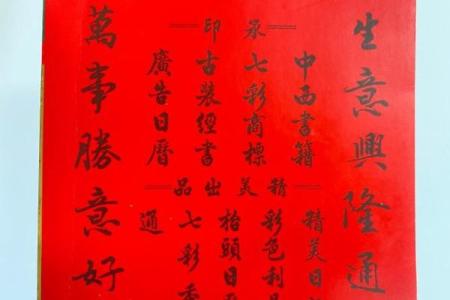 生意興隆通
承印
中西書籍
七彩商標
古裝經書
廣告日曆
精美出品
精美日
彩色利是
枱頭日
七彩香
通
萬事勝意好